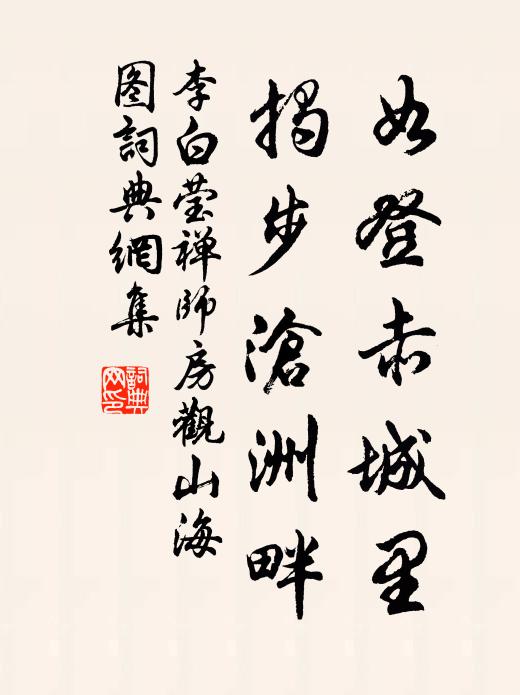 如登赤城里
揭步滄洲畔
李白瑩禅師房觀山海
图詞典網集
詞典網印